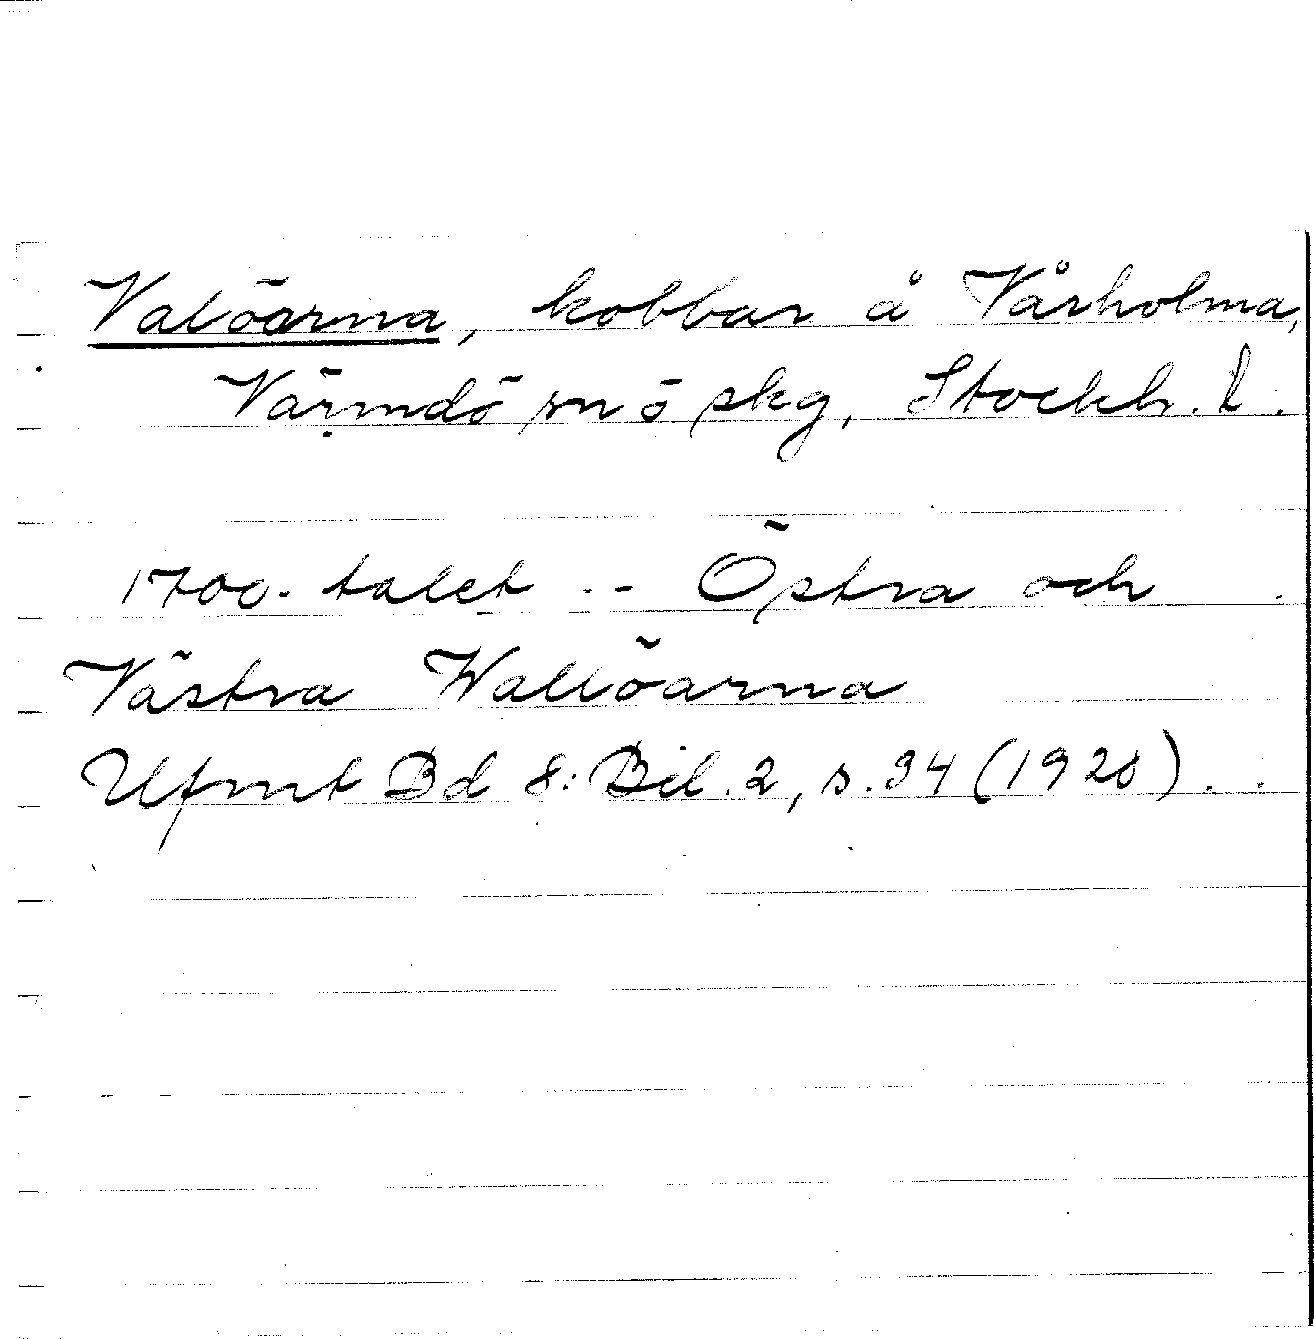 Valöarna, kobbar å Vårholma,
Värmdö sn ö skg, Stockh. l.
1700-talet -- Östra och
Västra Wallöarna
Ufmt Bd 8: Bil. 2, s. 34 (1920).